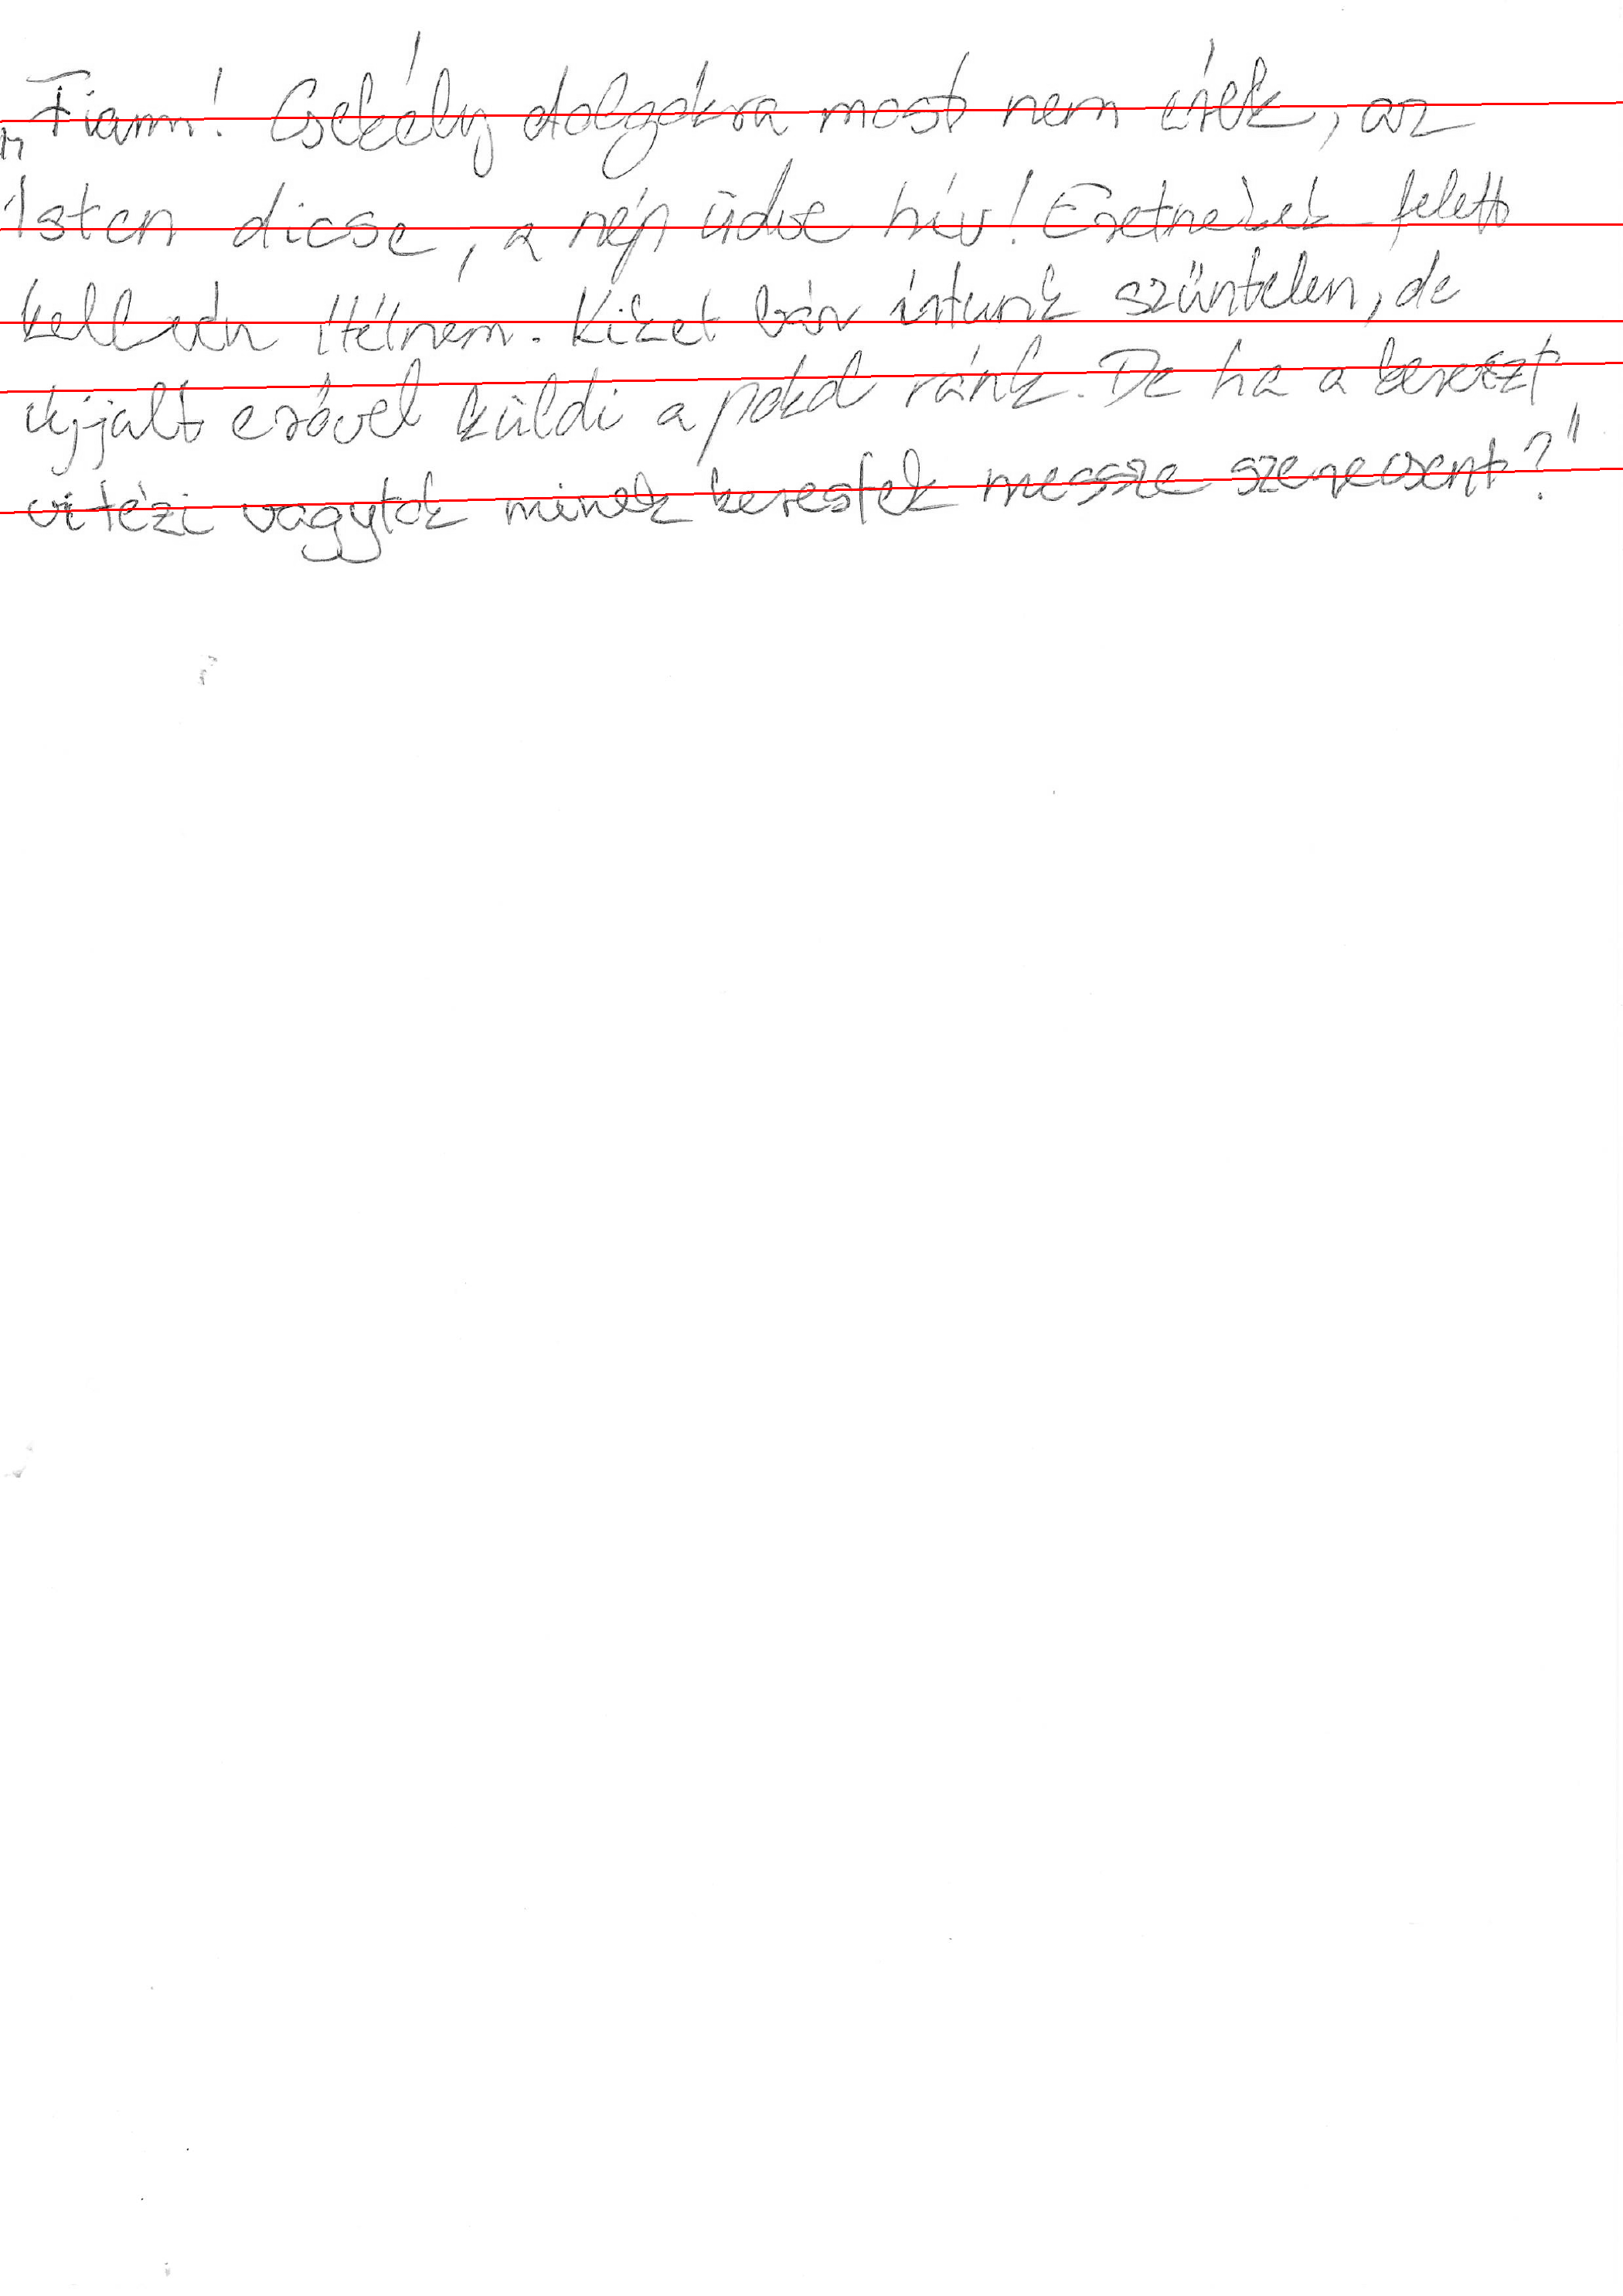 „Fiam! Csekély dolgokra most nem érek, az
Isten dicse, a nép üdve hív! Eretnekek felett
kellend ítélnem. Kiket bár írtunk szüntelen, de
újjalt erővel küldi a pokol ránk. De ha a kereszt
vitézi vagytok minek kerestek messze szerecsent?"